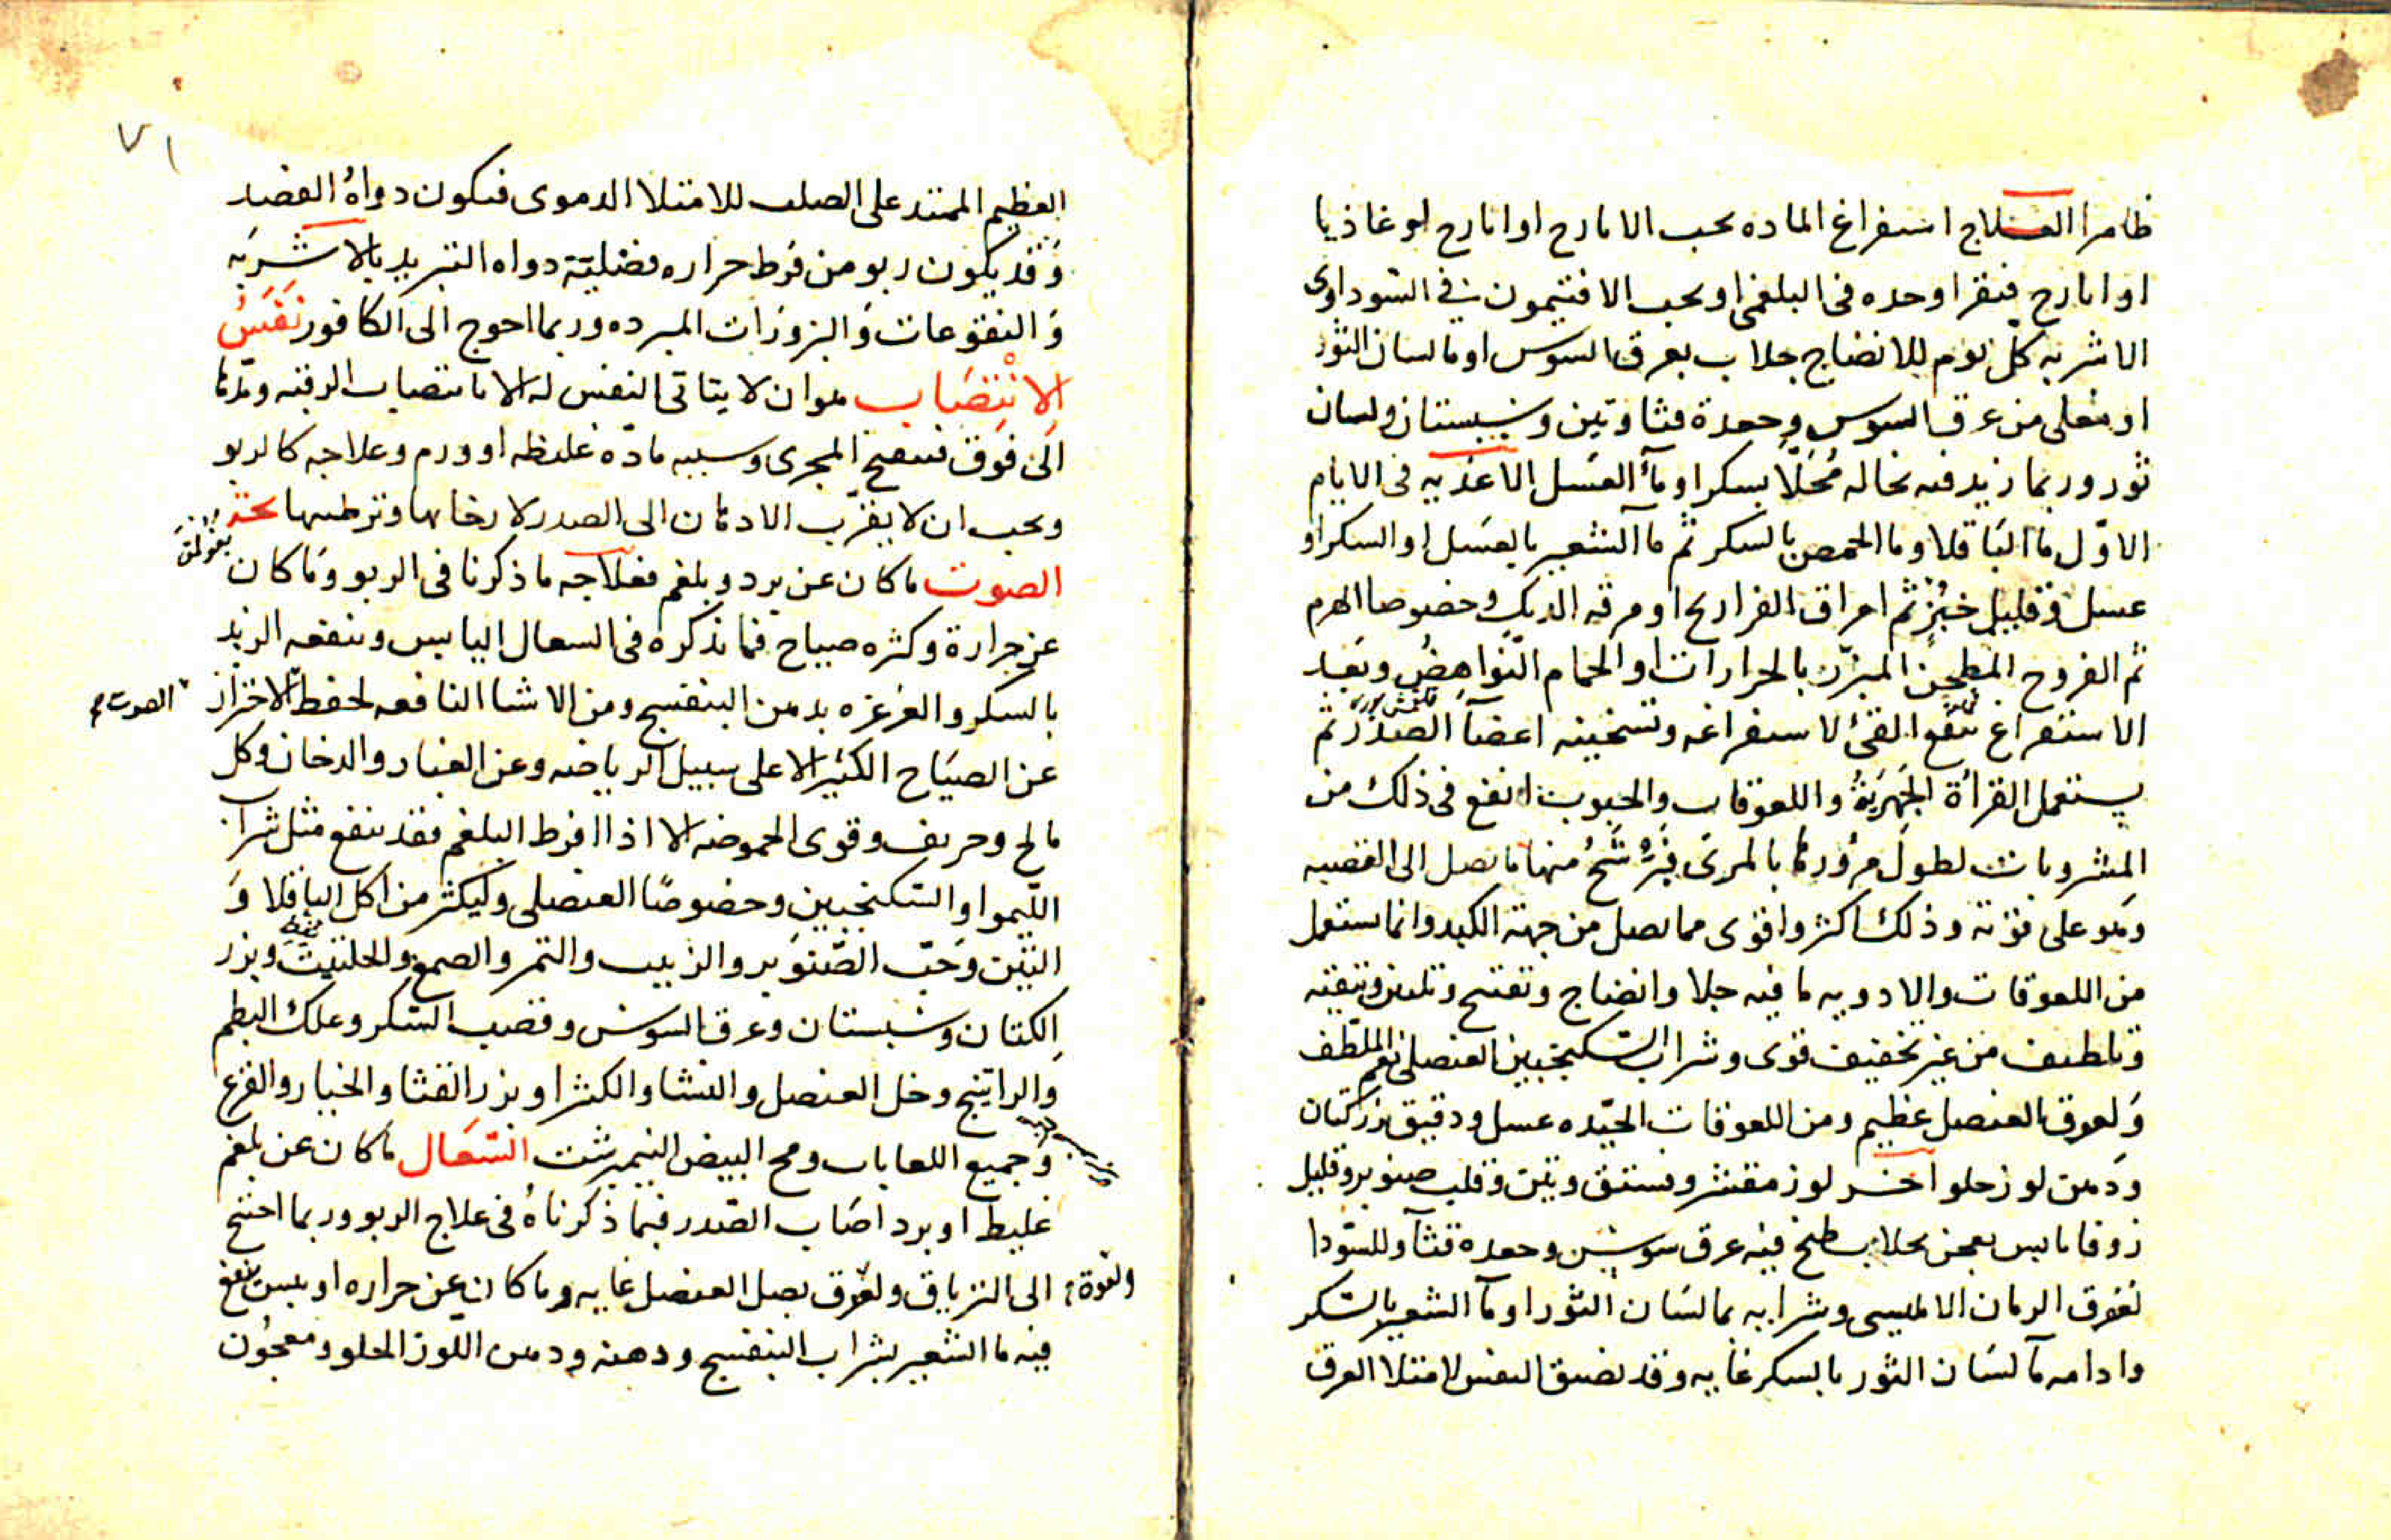 ظاهرا العلاج استفراغ الماده بحب الايارج او ايارج لوغاذيا
او ايارج فيقرا وحده فى البلغمى او بحب الافتيمون فى السوداوى
الاشربه كل يوم للانضاج جلاب بعرق السوس او ما لسان الثور
او مغلى من عرق السوس وجعدة قثا وتين وسبستان ولسان
ثور وربما زيد فيه نخاله مُحَلّا بسكر او مآ العسل الاغذيه فى الايام
الاوّل ما الباقلا وما الحمص بالسكر ثم مآ الشعير بالعسل او السكر او
عسل وقليل خبز ثم امراق الفراريج او مرقه الديك وخصوصا الهرم
ثم الفروج المطجن المبزر بالحرارات او الحمام النواهض وبعد
الاستفراغ ينفع القئ لاستفراغه وتسخينه اعضآ الصدر ثم
يستعمل القرأة الجهرية واللعوقات والحبوب انفع فى ذلك من
المشروبات لطول مرورها بالمرى فيرشح منها ما يصل الى القصبه
وهو على قوته وذلك اكثر واقوى مما يصل من جهة الكبد وانما يستعمل
من اللعوقات والادويه ما فيه جلا وانضاج وتفتيح وتليين وتنقيه
وتلطيف من غير تجفيف قوى وشراب السكنجبين العنصلى نعم الملطف
وَلعوق العنصل عظيم ومن اللعوقات الجيّده عسل ودقيق بزركتان
ودهن لوز حلو آخر لوز مقشر وفستق وتين وقلب صنوبر وقليل
زوفا يابس يعجن بجلاب يطبخ فيه عرق سوس وجعده قثآ وللسودا
لعوق الرمان الامليسى وشرابه بما لسان الثور او مآ الشعير بالسكر
وادامه مآ لسان الثور بالسكر غايه وقد يضيق النفس لامتلا العرق
٧١
العظيم الممتد على الصلب للامتلا الدموى فيكون دواهُ الفصد
وَقد يكون ربو من فرط حراره فضليّة دواه التبريد بالاشربَه
وَالنقوعات وَالبزورَات المبرده وربما احوج الى الكافور نَفَسُ
الانْتِصَاب هو ان لا يتاتى النفس له الا بانتصاب الرقبه ومدّها
الى فوق فينفتح المجرى وسببه مادّه غليظه او ورم وعلاجه كالربو
ويجب ان لا يقرّب الادهان الى الصدر لارخايها وترطيبها بحة
الصوت ما كان عن برد وبلغم فعلاجه ما ذكرنا فى الربو وَما كان
عن حرارة وكثره صياح فما نذكره فى السعال اليابس وينفعه الزبد
بالسكر والغرغره بدهن البنفسج ومن الاشيا النافعه لحفظ الاحتراز
الصوت
عن الصيَاح الكثير الا على سبيل الرياضه وعن الغبار والدخان وكل
مالح وحريف وقوى الحموضه الا اذا افرط البلغم فقد ينفع مثل شراب
الليمو او السكنجبين وخصوصًا العنصلى وليكثر من اكل الباقلا وَ
التين وَحَبّ الصّنوَبر والزبيب والتمر والصمغ والحلتيت وبزر
الكتان وسبستان وعرق السوس وقصب السكر وعلك البطم
وَالراتينج وخل العنصل والنشا والكثيرا وبزر القثا والخيار والقرع
وجميع اللعابات ومح البيض النيمبرشت السّعَال ما كان عن بلغم
غليظ او برد اصَاب الصدر فبما ذكرناهُ فى علاج الربو وربما احتيج
ولقوة
الى الترياق ولعوق بصل العنصل غايه وما كان عن حراره او يبس ينفع
فيه ما الشعير بشراب البنفسج ودهنه ودهن اللوز الحلو ومعجُون